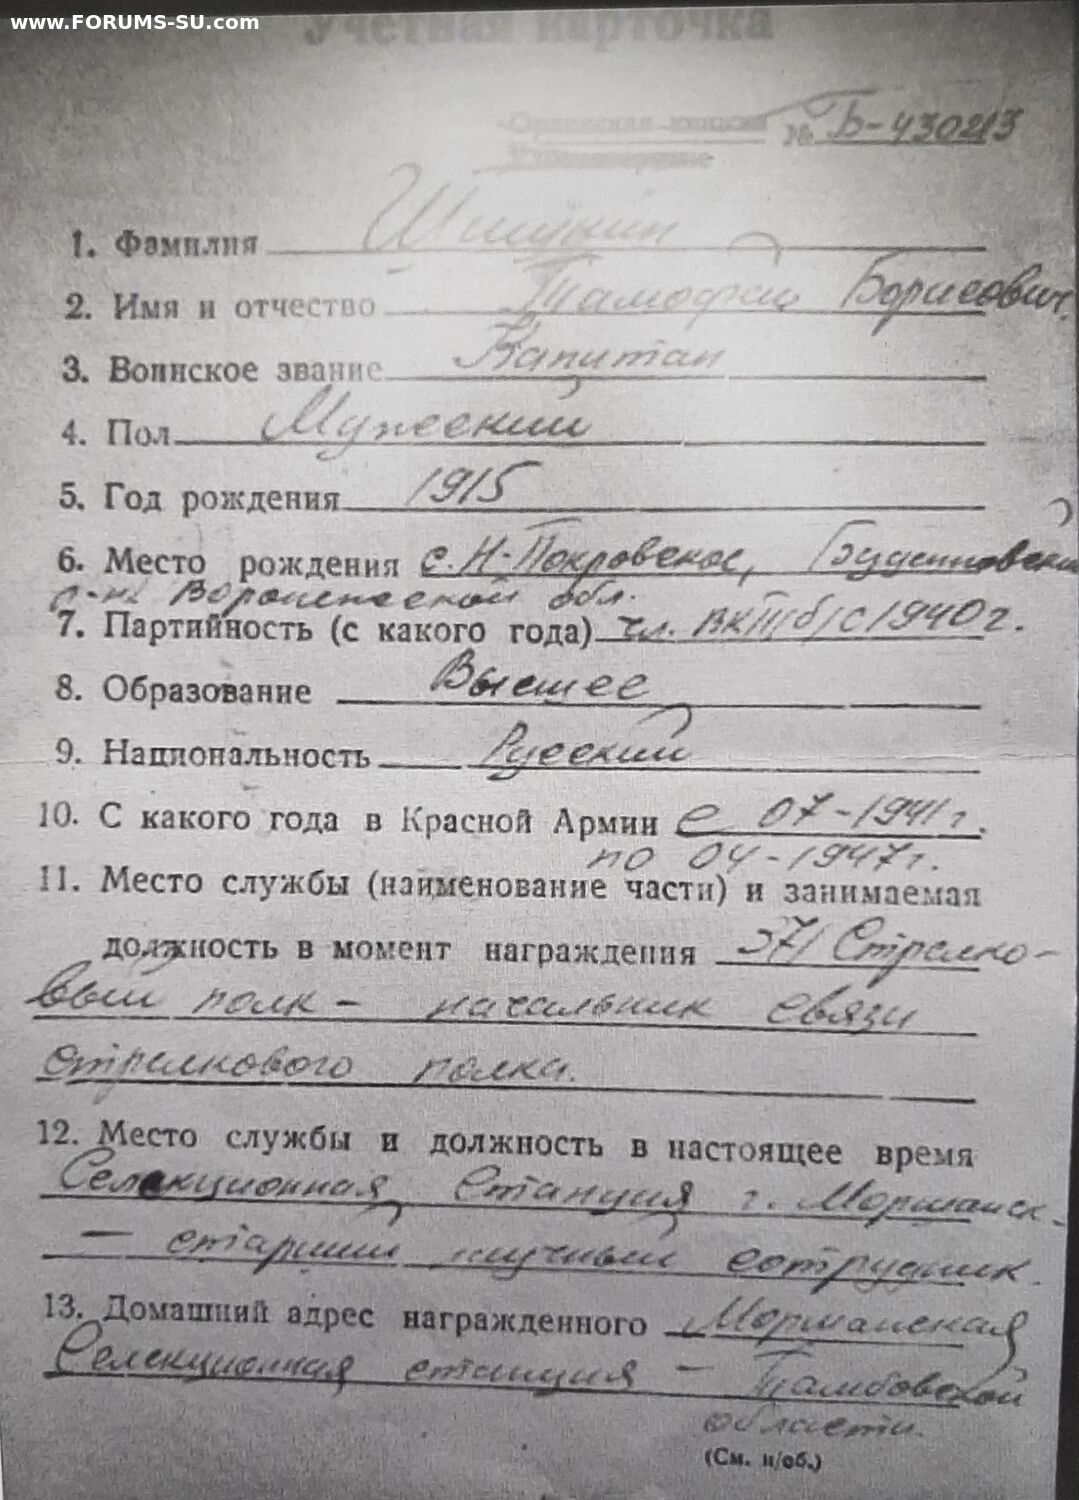 www.FORUMS-SU.com
Учетная карточка
Орденская книжка № Б-430213
1. Фамилия Шишкин
2. Имя и отчество Тамофей Борисович.
3. Воинское звание Капитан
4. Пол Мужеский
5. Год рождения 1915
6. Место рождения с. Н-Покровское, Будённовский
р-н Воронежской обл.
7. Партийность (с какого года) чл. ВКП/б/ с 1940 г.
8. Образование Высшее
9. Национальность Русский
10. С какого года в Красной Армии с 07-1941 г.
по 04-1947 г.
11. Место службы (наименование части) и занимаемая
должность в момент награждения 371 Стрелко-
вый полк - начальник связи
стрелкового полка.
12. Место службы и должность в настоящее время
Селекционная Станция г. Моршанск-
- старший научный сотрудник.
13. Домашний адрес награжденного Моршанская
Селекционная станция - Тамбовской
области.
(См. н/об.)